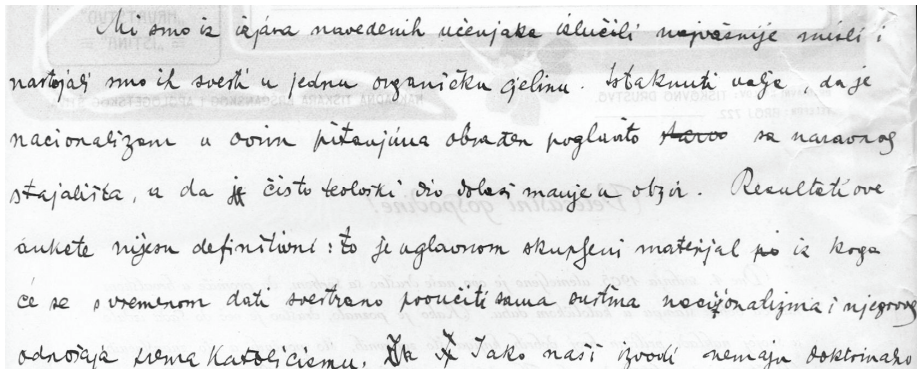 Mi smo iz izjava navedenih učenjaka izlučili najvažnije misli i
nastojali smo ih svesti u jednu organičku cjelinu. Istaknuti valja, da je
nacionalizam u ovim pitanjima obrađen poglavito sa naravnog
stajališta, a da čisto teološki dio dolazi manje u obzir. Resultati ove
ankete nijesu definitivni: to je uglavnom skupljeni materjal iz koga
će se s vremenom dati svestrano proučiti sama suština nacijonalizma i njegovog
odnošaja prema Katolicismu. Iako naši izvodi nemaju doktrinarno